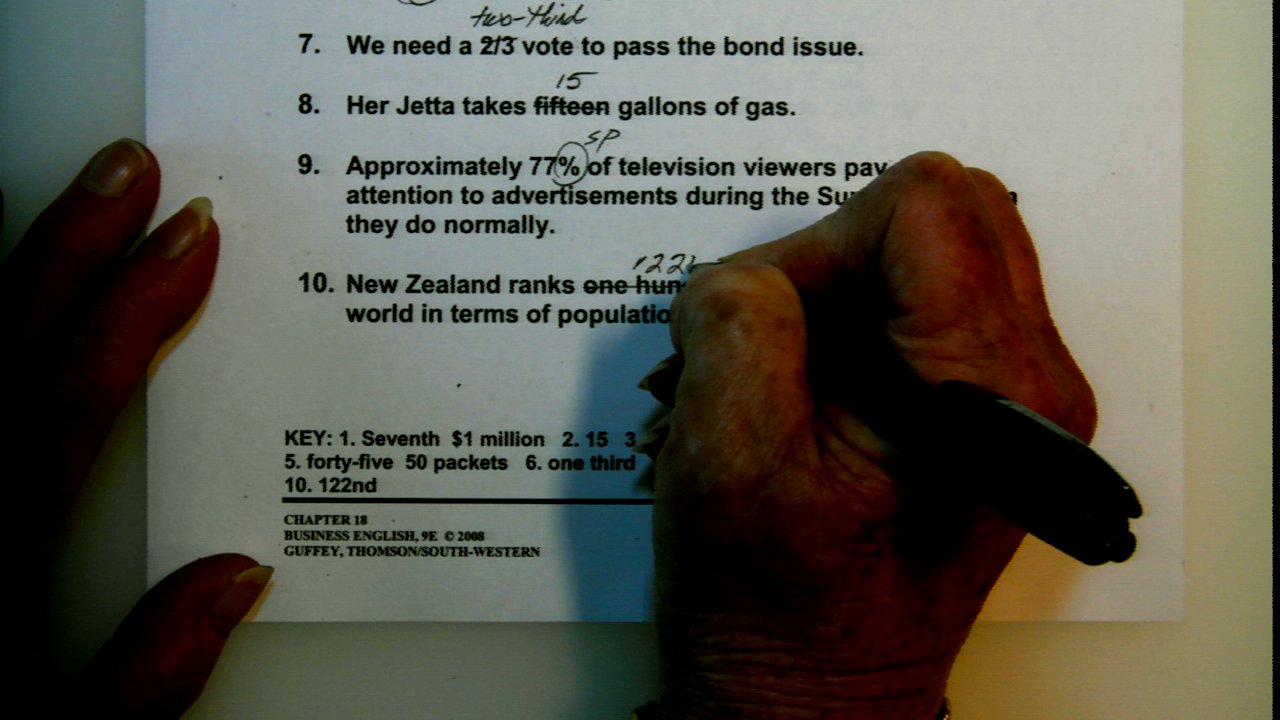 two-third
7. We need a 2/3 vote to pass the bond issue.
15
8. Her Jetta takes fifteen gallons of gas.
sp
9. Approximately 77% of television viewers pay
attention to advertisements during the
they do normally.
122
10. New Zealand ranks one
world in terms of
KEY: 1. Seventh $1 million 2. 15 3
5. forty-five 50 packets 6. one third
10. 122nd
CHAPTER 18
BUSINESS ENGLISH, 9E © 2008
GUFFEY, THOMSON/SOUTH-WESTERN